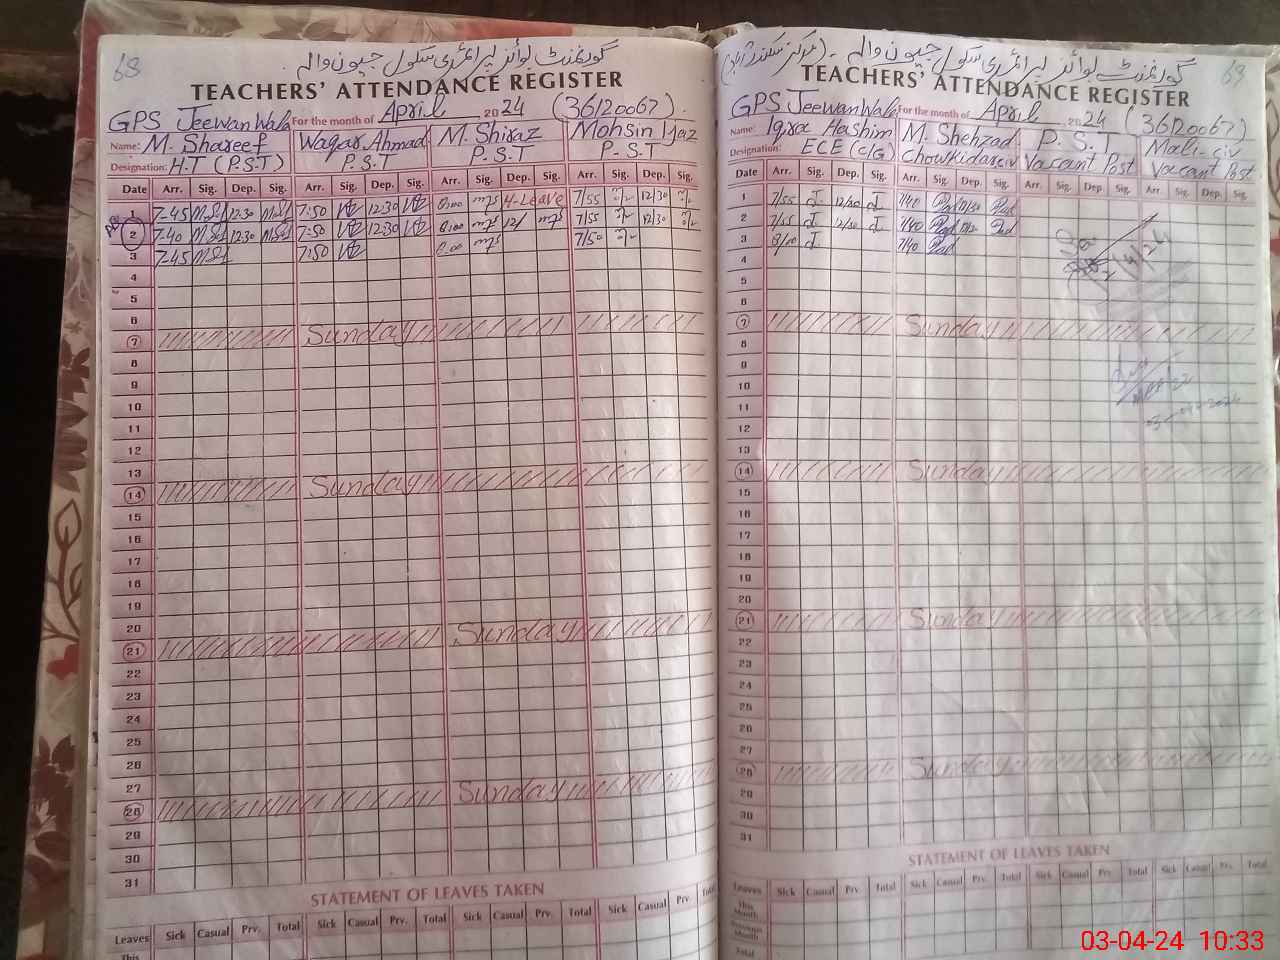 68
گورنمنٹ بوائز پرائمری سکول جیون والہ
TEACHERS' ATTENDANCE REGISTER
GPS JeewanWala For the month of April 2024 (36120067)
Name: M. Shareef Waqar Ahmad M. Shiraz Mohsin Ijaz
Designation: H.T (P.S.T) P.S.T P.S.T P.S.T
Date Arr. Sig. Dep. Sig. Arr. Sig. Dep. Sig. Arr. Sig. Dep. Sig. Arr. Sig. Dep. Sig.
1 7-45 12:30 7:50 12:30 8:00 H-Leave 7/55 12/30
2 7-40 12:30 7:50 12:30 8:00 12/ 7/55 12/30
3 7-45 7:50 8:00 7/50
4
5
6
7 Sunday
8
9
10
11
12
13
14 Sunday
15
16
17
18
19
20
21 Sunday
22
23
24
25
26
27
28 Sunday
29
30
31
STATEMENT OF LEAVES TAKEN
Leaves Sick Casual Prv. Total Sick Casual Prv. Total Sick Casual Prv. Total Sick Casual Prv. Total
This
69
گورنمنٹ بوائز پرائمری سکول جیون والہ
TEACHERS' ATTENDANCE REGISTER
GPS JeewanWala For the month of April 2024 (36120067)
Name: Iqra Hashim M. Shehzad P.S.T Mali-civ
Designation: ECE (C/G) Chowkidar civ Vacant Post Vacant Post
Date Arr. Sig. Dep. Sig. Arr. Sig. Dep. Sig. Arr. Sig. Dep. Sig. Arr. Sig. Dep. Sig.
1 7/55 12/30 7/40
2 7/55 12/30 7/40
3 8/00 7/40
4
5
6
7 Sunday
8
9
10
11
12
13
14 Sunday
15
16
17
18
19
20
21 Sunday
22
23
24
25
26
27
28 Sunday
29
30
31
STATEMENT OF LEAVES TAKEN
Leaves Sick Casual Prv. Total Sick Casual Prv. Total Sick Casual Prv. Total Sick Casual Prv. Total
This Month
Previous Month
Total
03-04-24 10:33